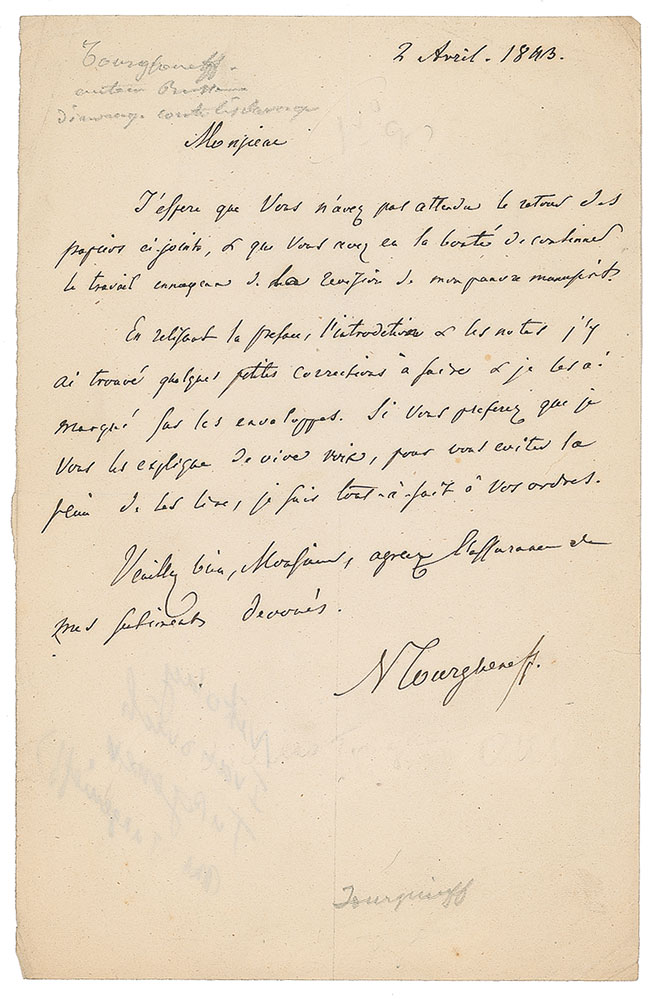 Tourgueneff.
auteur Russe
d'ouvrage contre l'esclavage
2 Avril. 1843.
Monsieur
J'espere que Vous n'avez pas attendu le retour des
papiers ci-joints, & que Vous avez eu la bonté de continuer
le travail ennuyeux de la revision de mon pauvre manuscrit.
En relisant la preface, l'introdction & les notes j'y
ai trouvé quelques petites corrections à faire & je les ai
marqué sur les enveloppes. Si Vous preferez que je
Vous les explique de vive voix, pour vous eviter la
peine de les lire, je suis tout-à-fait à Vos ordres.
Veuillez bien, Monsieur, agreez l'assurance de
mes sentiments devoués.
N Tourgueneff.
Tourgueneff